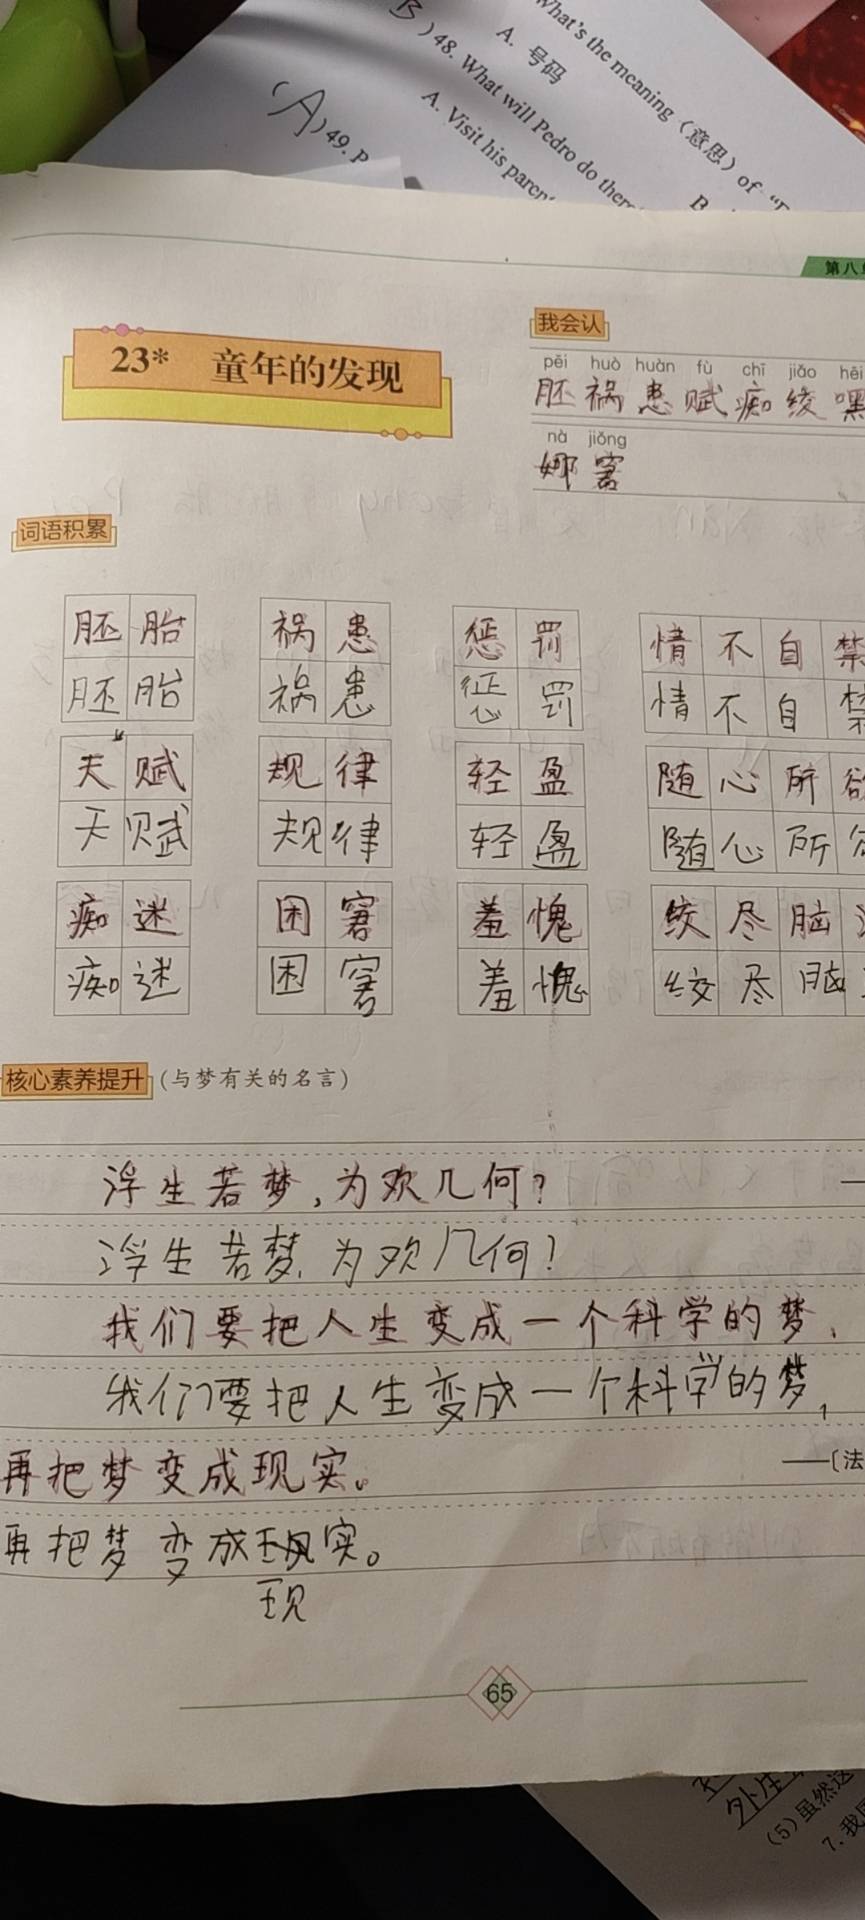 What's the meaning（意思）of "
A. 号码
B
B）48. What will Pedro do there
A. Visit his paren
（A）49. P
第八
23* 童年的发现
我会认
pēi huò huàn fù chī jiǎo hēi
胚 祸 患 赋 痴 绞 嘿
nà jiǒng
娜 窘
词语积累
胚胎 祸患 惩罚 情不自禁
胚胎 祸患 惩罚 情不自禁
天赋 规律 轻盈 随心所欲
天赋 规律 轻盈 随心所
痴迷 困窘 羞愧 绞尽脑
痴迷 困窘 羞愧 绞尽脑
核心素养提升（与梦有关的名言）
浮生若梦,为欢几何?
浮生若梦,为欢几何?
我们要把人生变成一个科学的梦,
我们要把人生变成一个科学的梦,
再把梦变成现实。
——〔法
再把梦变成现实。
现
65
外
(5)虽然这
7. 我